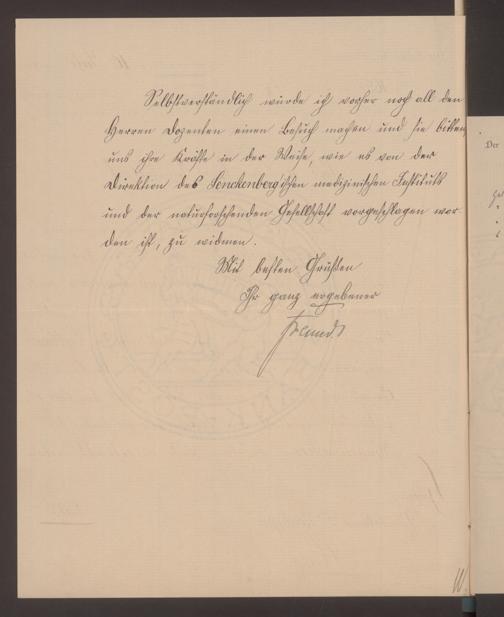 Selbstverständlich würde ich vorher noch all den
Herren Dozenten einen Besuch machen und sie bitten,
uns ihre Kräfte in der Weise, wie es von der
Direktion des Senckenberg'schen medizinischen Instituts
und der naturforschenden Gesellschaft vorgeschlagen wor
den ist, zu widmen.
Mit besten Grüßen
Ihr ganz ergebener
Der